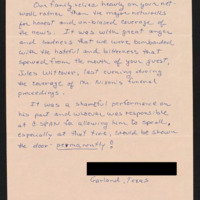 Our family relies heavily on your net-
work rather than the major networks
for honest and un-biased coverage of
the news. It was with great anger
and sadness that we were bombarded
with the hateful and bitterness that
spewed from the mouth of your guest,
Jules Witcover, last evening during
the coverage of the Nixon's funeral
proceedings.
It was a shameful performance on
his part and whoever was responsible
at C-SPAN for allowing him to speak,
especially at that time, should be shown
the door - permanently!
Garland, Texas